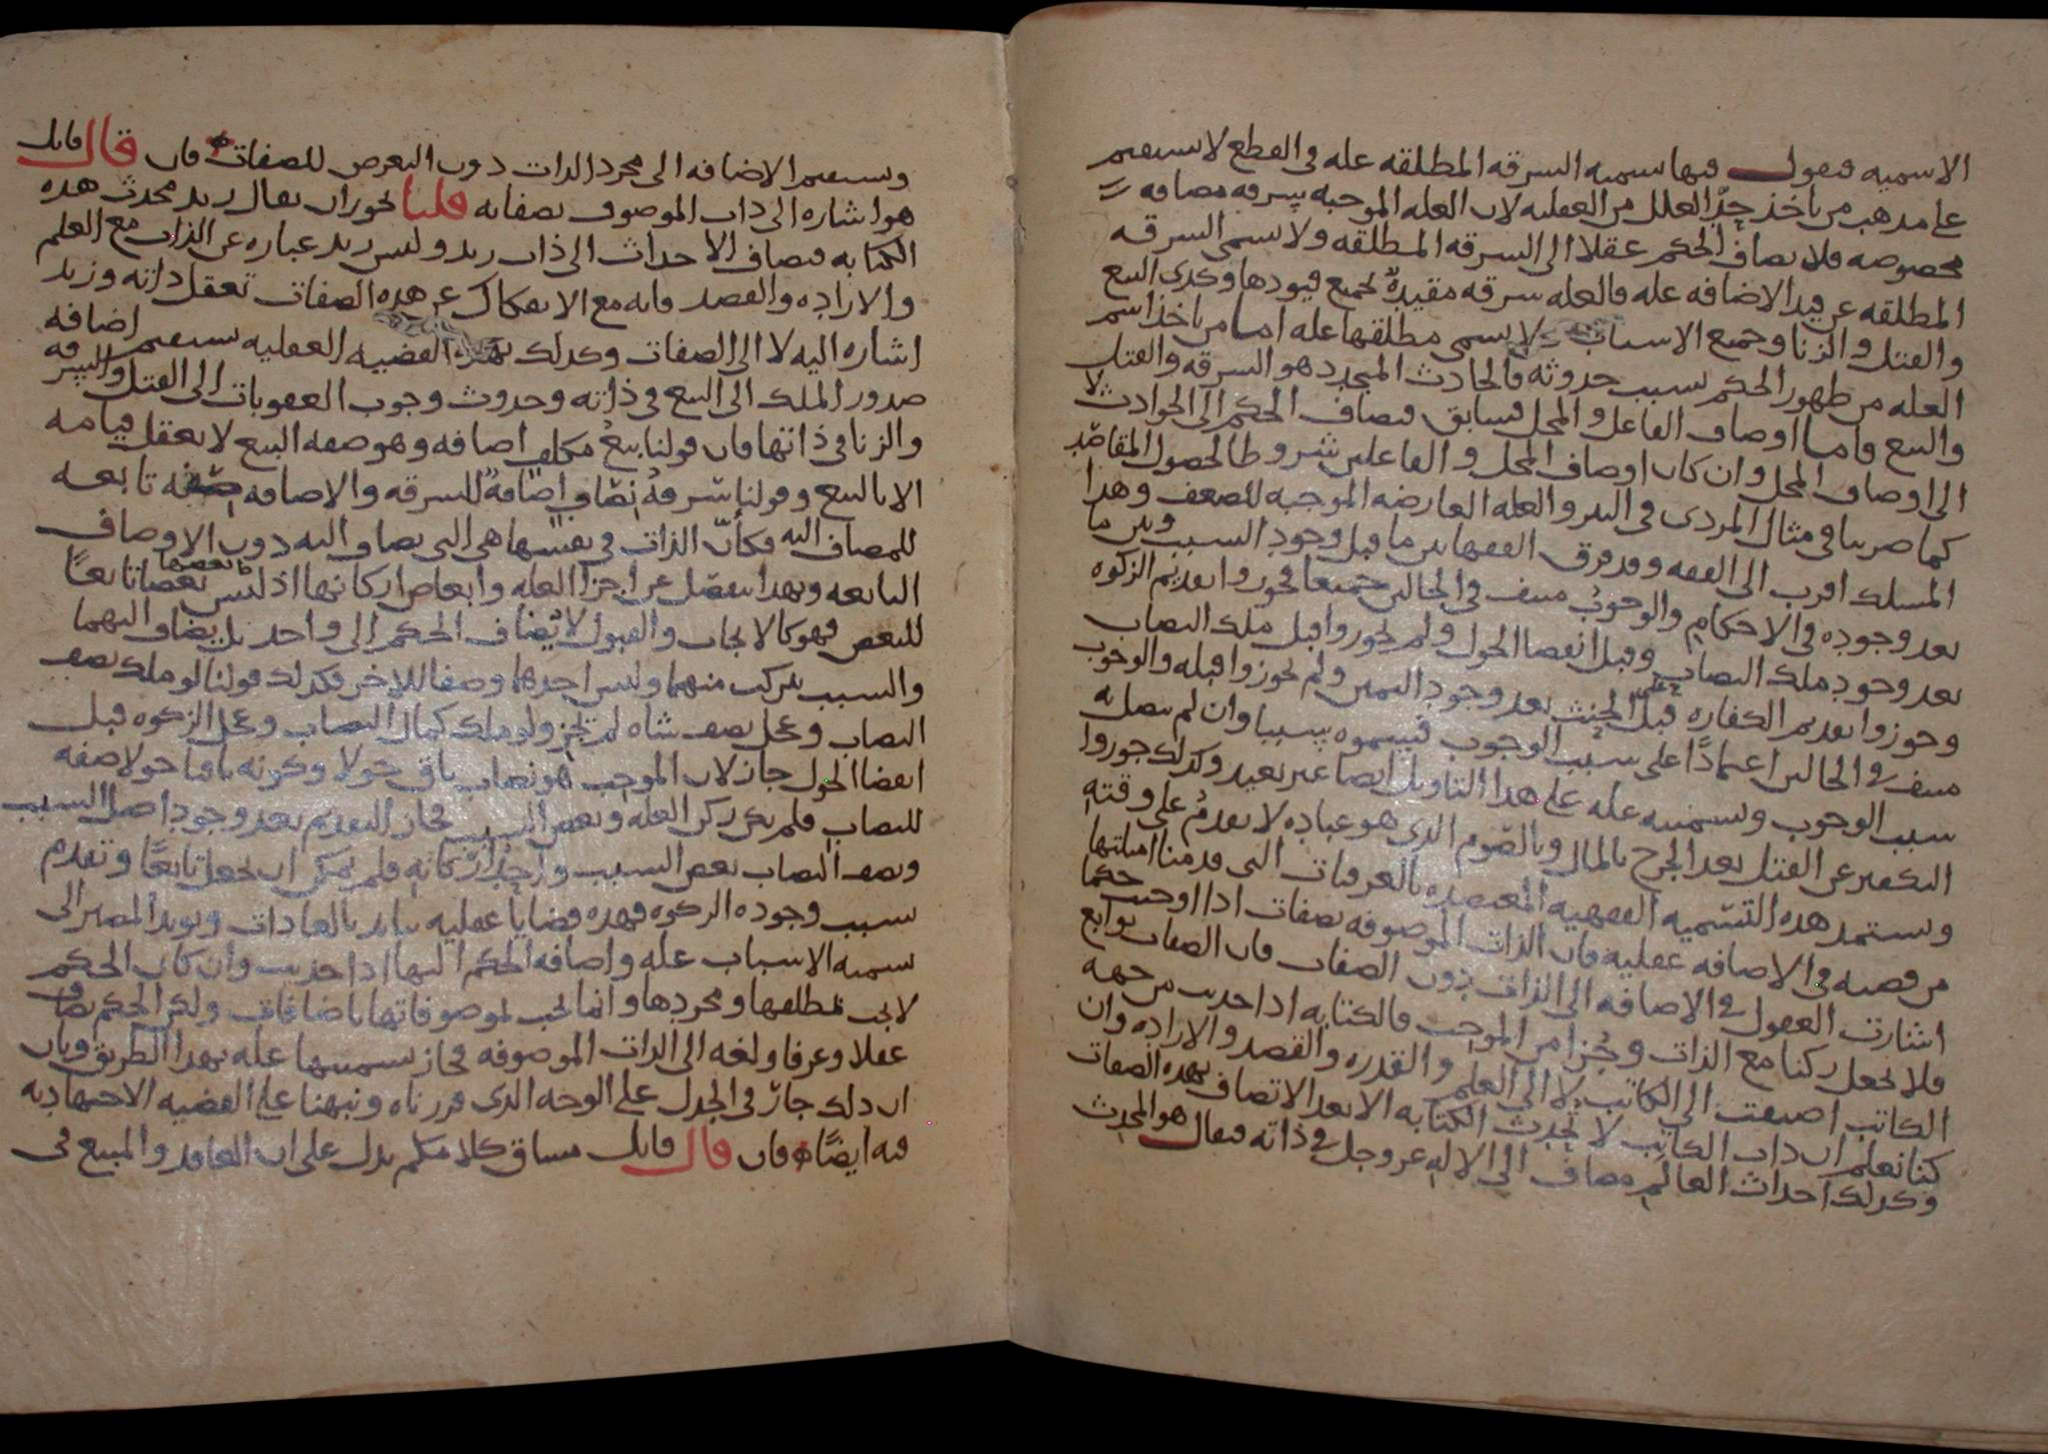 الاسميه فنقول فيها سميه السرقه المطلقه عله في القطع لا يستقيم
على مذهب من ياخذ حد العلل من العقليه لان العله الموجبه سرقه مضافه
مخصوصه فلا يضاف الحكم عقلا الى السرقه المطلقه ولا يسمى السرقه
المطلقه عن قيد الاضافه عله فالعله سرقه مقيدة بجميع قيودها وكذى البيع
والقتل والزنا وجميع الاسباب لا يسمى مطلقها عله اما من ياخذ اسم
العله من ظهور الحكم بسبب حدوثه فالحادث المتجدد هو السرقه والقتل
والبيع واما اوصاف الفاعل والمحل فسابق فيضاف الحكم الى الحوادث لا
الى اوصاف المحل وان كان اوصاف المحل والفاعلين شروطا لحصول المقاصد
كما ضربنا في مثال المردى في البير والعله العارضه الموجبه للضعف وهذا
المسلك اقرب الى الفقه وقد فرق الفقها بين ما قبل وجود السبب وبين ما
بعد وجوده في الاحكام والوجوب منتف في الحالين جميعا فجوزوا تقديم الزكوه
بعد وجود ملك النصاب وقبل انقضا الحول ولم يجوزوا قبل ملك النصاب
وجوزوا تقديم الكفاره على الحنث بعد وجود اليمين ولم يجوزوا قبله والوجوب
منتف في الحالين اعتمادًا على سبب الوجوب فيسموه سببا وان لم يتصل به
سبب الوجوب وتسميته عله على هذا التاويل ايضا غير بعيد وكذلك جوزوا
التكفير عن القتل بعد الجرح بالمال وبالصوم الذى هو عباده لا تقدم على وقته
وتستمد هذه التسميه الفقهيه المعتضده بالعرفيات التي قدمنا امثلتها
من قضيه في الاضافه عقليه فان الذات الموصوفه بصفات اذا اوجبت حكما
اشارت العقول في الاضافه الى الذات دون الصفات فان الصفات توابع
فلا تجعل ركنا مع الذات وجزا من الموجب فالكتابه اذا حدثت من جهه
الكاتب اضيفت الى الكاتب لا الى العلم والقدره والقصد والاراده وان
كنا نعلم ان ذات الكاتب لا تحدث الكتابه الا بعد الاتصاف بهذه الصفات
وكذلك احداث العالم مضاف الى الاله عز وجل في ذاته فيقال هو المحدث
ويستقيم الاضافه الى مجرد الذات دون التعرض للصفات فان قال قايل
هو اشاره الى ذات الموصوف بصفاته قلنا يجوز ان يقال زيد محدث هذه
الكتابه فيضاف الاحداث الى ذات زيد وليس زيد عباره عن الذات مع العلم
والاراده والقصد فانه مع الانفكاك عن هذه الصفات تعقل ذاته وزيد
اشاره اليه لا الى الصفات وكذلك بهذه القضيه العقليه يستقيم اضافه
صدور الملك الى البيع في ذاته وحدوث وجوب العقوبات الى القتل والسرقه
والزنا في ذاتها فان قولنا بيع مكلف اضافه وهو صفه البيع لا يعقل قيامه
الا بالبيع وقولنا سرقة نصاب اضافة للسرقه والاضافه صفه تابعه
للمضاف اليه فكان الذات في نفسها هي التي يضاف اليه دون الاوصاف
التابعه وبهذا ينفصل عن اجزا العله وابعاض اركانها اذ ليس بعضها تابعًا
للبعض فهو كالايجاب والقبول لا يضاف الحكم الى واحد بل يضاف اليهما
والسبب يتركب منهما وليس احدهما وصفا للاخر فكذلك قولنا لو ملك نصف
النصاب وعجل نصف شاه لم يجز ولو ملك كمال النصاب وعجل الزكوه قبل
انقضا الحول جاز لان الموجب هو نصاب باق حولا وكونه باقيا حولا صفه
للنصاب فلم يكن ركن العله وبعض السبب فجاز التقديم بعد وجود اصل السبب
ونصف النصاب بعض السبب واحد اركانه فلم يمكن ان يجعل تابعًا وتقدم
سبب وجوده الزكوه فهذه قضايا عقليه تتايد بالعادات وتويد المصير الى
تسميه الاسباب عله واضافه الحكم اليها اذا حدثت وان كان الحكم
لا يجب بمطلقها ومجردها وانما يجب لموصوفاتها باضافات ولكن الحكم يضاف
عقلا وعرفا ولغه الى الذات الموصوفه فجاز تسميتها عله بهذا الطريق وبان
ان ذلك جاز في الجدل على الوجه الذى قررناه ونبهنا على القضيه الاجتهاديه
فيه ايضًا فان قال قايل مساق كلامكم يدل على ان العاقد والمبيع في